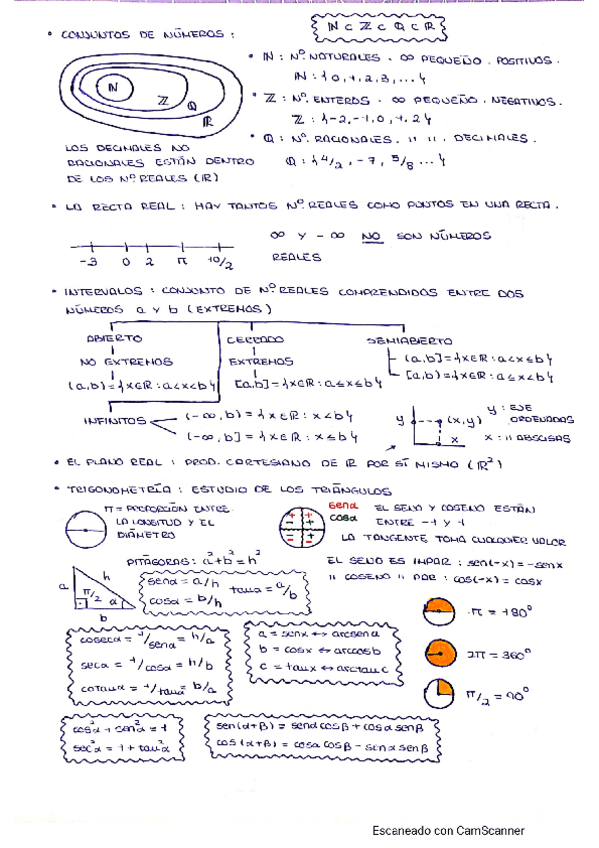 • CONJUNTOS DE NÚMEROS :
ℕ ⊂ ℤ ⊂ ℚ ⊂ ℝ
ℕ
ℤ
ℚ
ℝ
• ℕ : Nº NATURALES . ∞ PEQUEÑO . POSITIVOS.
ℕ : { 0, 1, 2, 3, ... }
• ℤ : Nº ENTEROS . ∞ PEQUEÑO . NEGATIVOS.
ℤ : {-2, -1, 0, 1, 2 }
• ℚ : Nº RACIONALES . " " . DECIMALES.
ℚ : { 4/2 , -7 , 5/8 ... }
LOS DECIMALES NO
RACIONALES ESTÁN DENTRO
DE LOS Nº REALES (ℝ)
• LA RECTA REAL : HAY TANTOS Nº REALES COMO PUNTOS EN UNA RECTA .
-3 0 2 π 10/2
∞ Y -∞ NO SON NÚMEROS
REALES
• INTERVALOS : CONJUNTO DE Nº REALES COMPRENDIDOS ENTRE DOS
NÚMEROS a Y b (EXTREMOS)
ABIERTO
NO EXTREMOS
(a,b) = {x∈ℝ : a<x<b}
CERRADO
EXTREMOS
[a,b] = {x∈ℝ : a≤x≤b}
SEMIABIERTO
(a,b] = {x∈ℝ : a<x≤b}
[a,b) = {x∈ℝ : a≤x<b}
INFINITOS
(-∞,b) = {x∈ℝ : x<b}
(-∞,b] = {x∈ℝ : x≤b}
y (x,y)
x
y : EJE
ORDENADAS
x : " ABSCISAS
• EL PLANO REAL : PROD. CARTESIANO DE ℝ POR SÍ MISMO (ℝ²)
• TRIGONOMETRÍA : ESTUDIO DE LOS TRIÁNGULOS
π = PROPORCIÓN ENTRE
LA LONGITUD Y EL
DIÁMETRO
+ +
- +
- -
- +
senα
cosα
EL SENO Y COSENO ESTÁN
ENTRE -1 Y 1
LA TANGENTE TOMA CUALQUIER VALOR
PITÁGORAS : a²+b² = h²
a h
π/2 α
b
senα = a/h
cosα = b/h
tanα = a/b
EL SENO ES IMPAR : sen(-x) = -senx
" COSENO " PAR : cos(-x) = cosx
π = 180°
2π = 360°
π/2 = 90°
cosecα = 1/senα = h/a
secα = 1/cosα = h/b
cotanα = 1/tanα = b/a
a = senx ↔ arcsena
b = cosx ↔ arccosb
c = tanx ↔ arctanc
cos²α + sen²α = 1
sec²α = 1 + tan²α
sen(α+β) = senα cosβ + cosα senβ
cos(α+β) = cosα cosβ - senα senβ
Escaneado con CamScanner